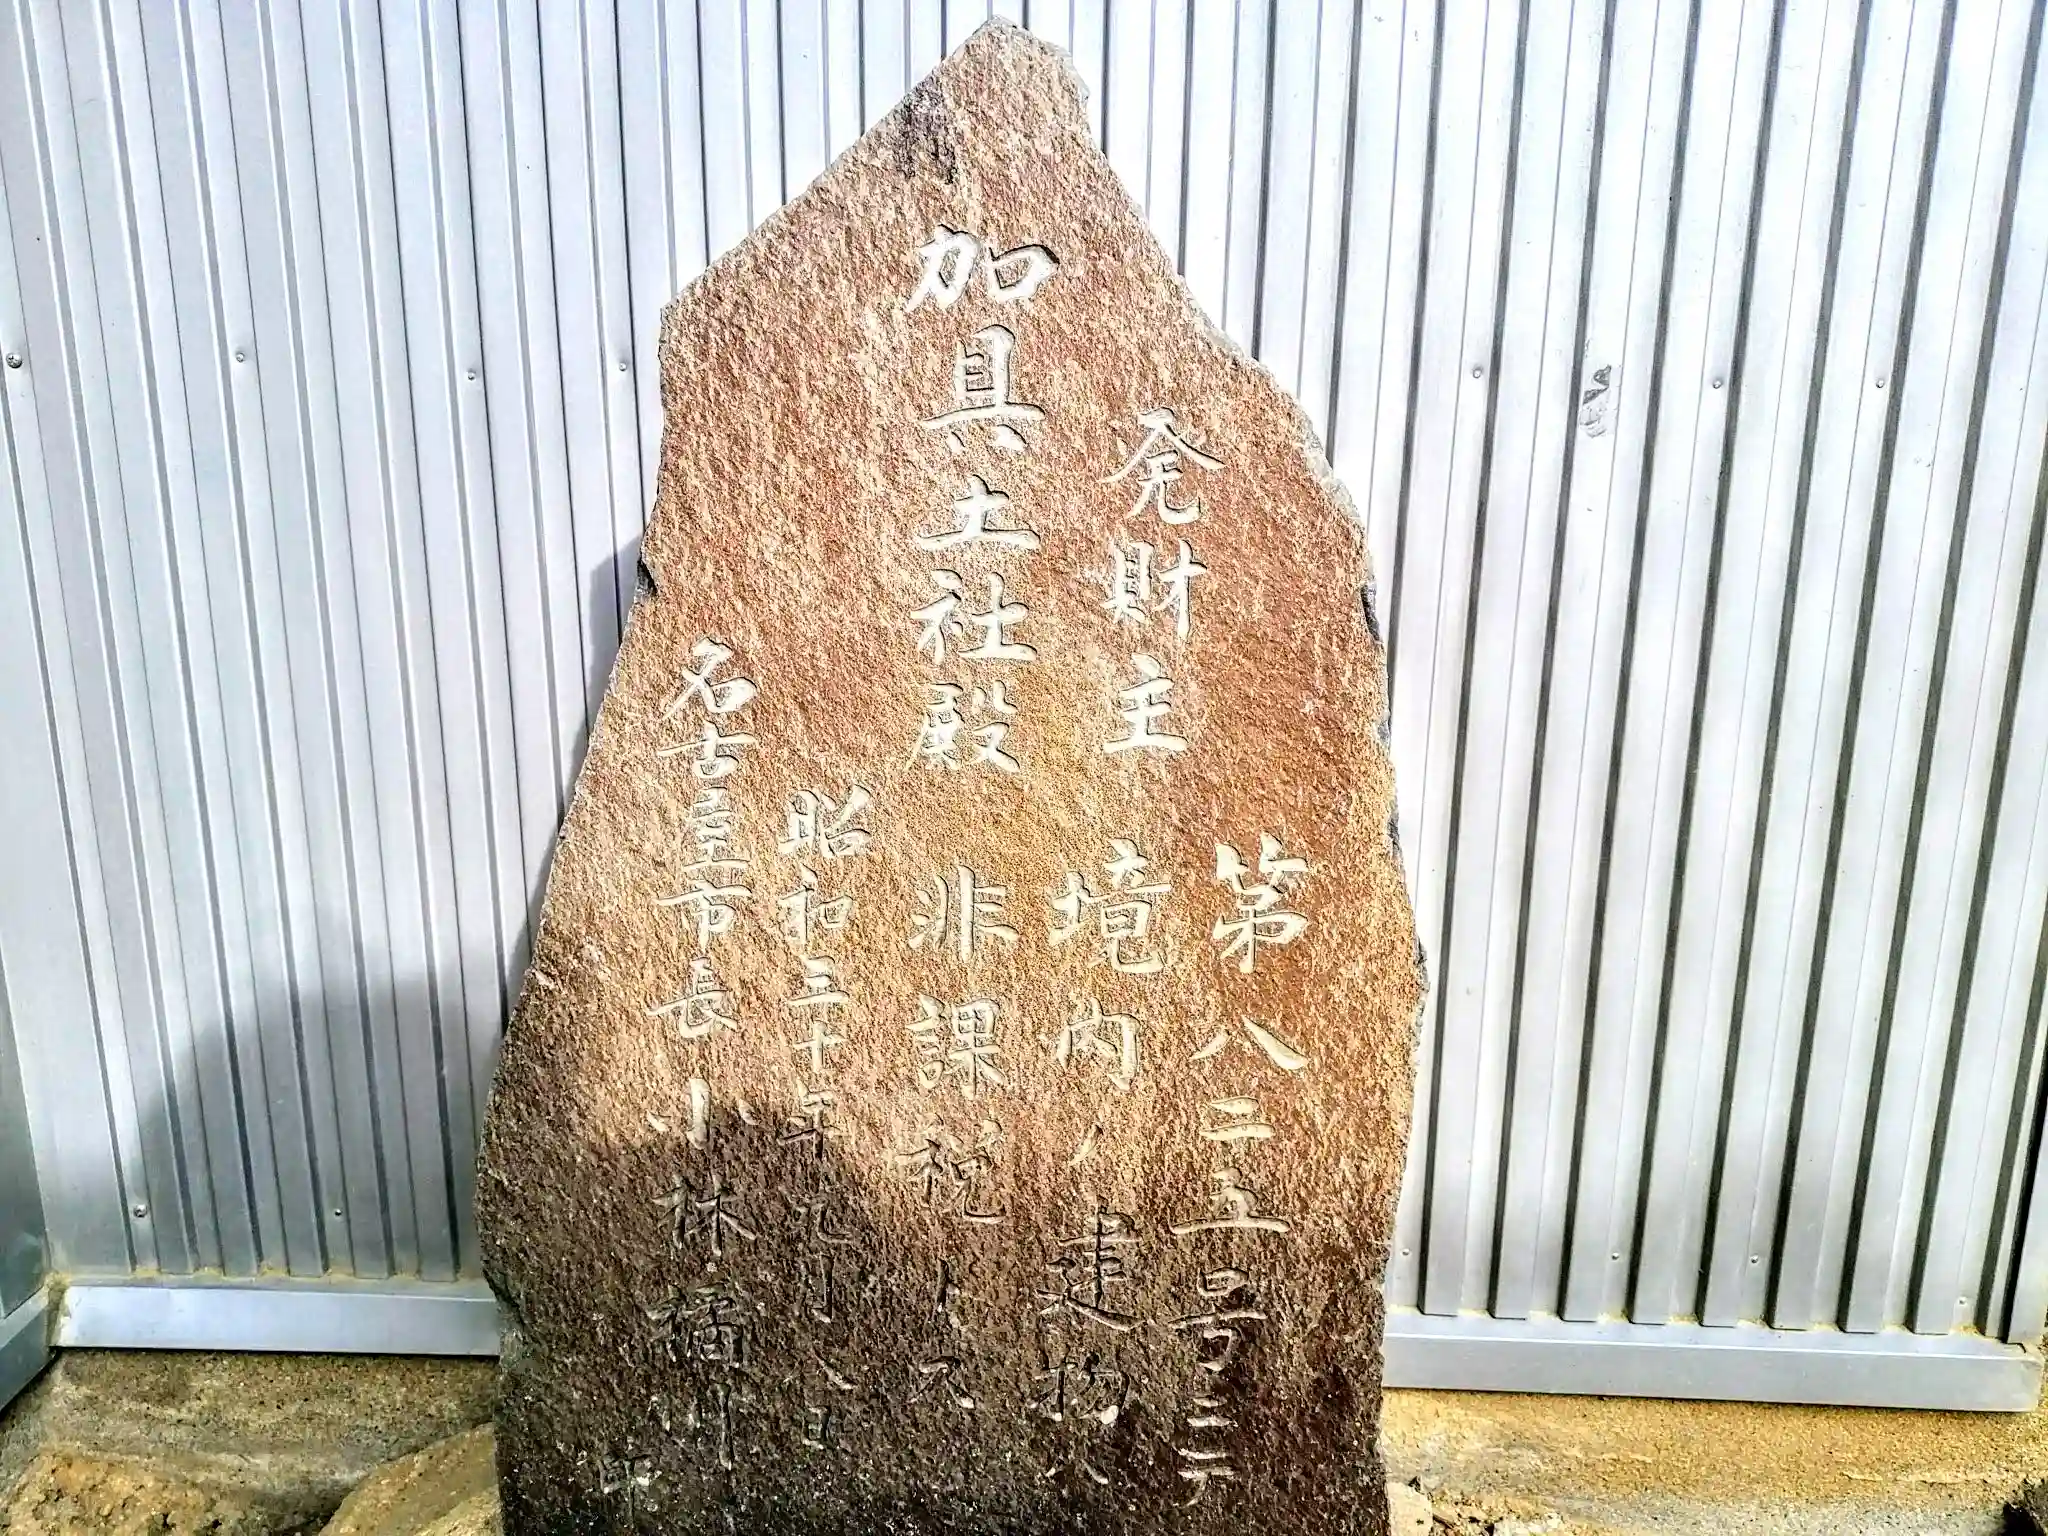 加具土社殿
発財主
第八二五号ニテ
境内ノ建物ハ
非課税トス
昭和三十年九月八日
名古屋市長小林橘川
印